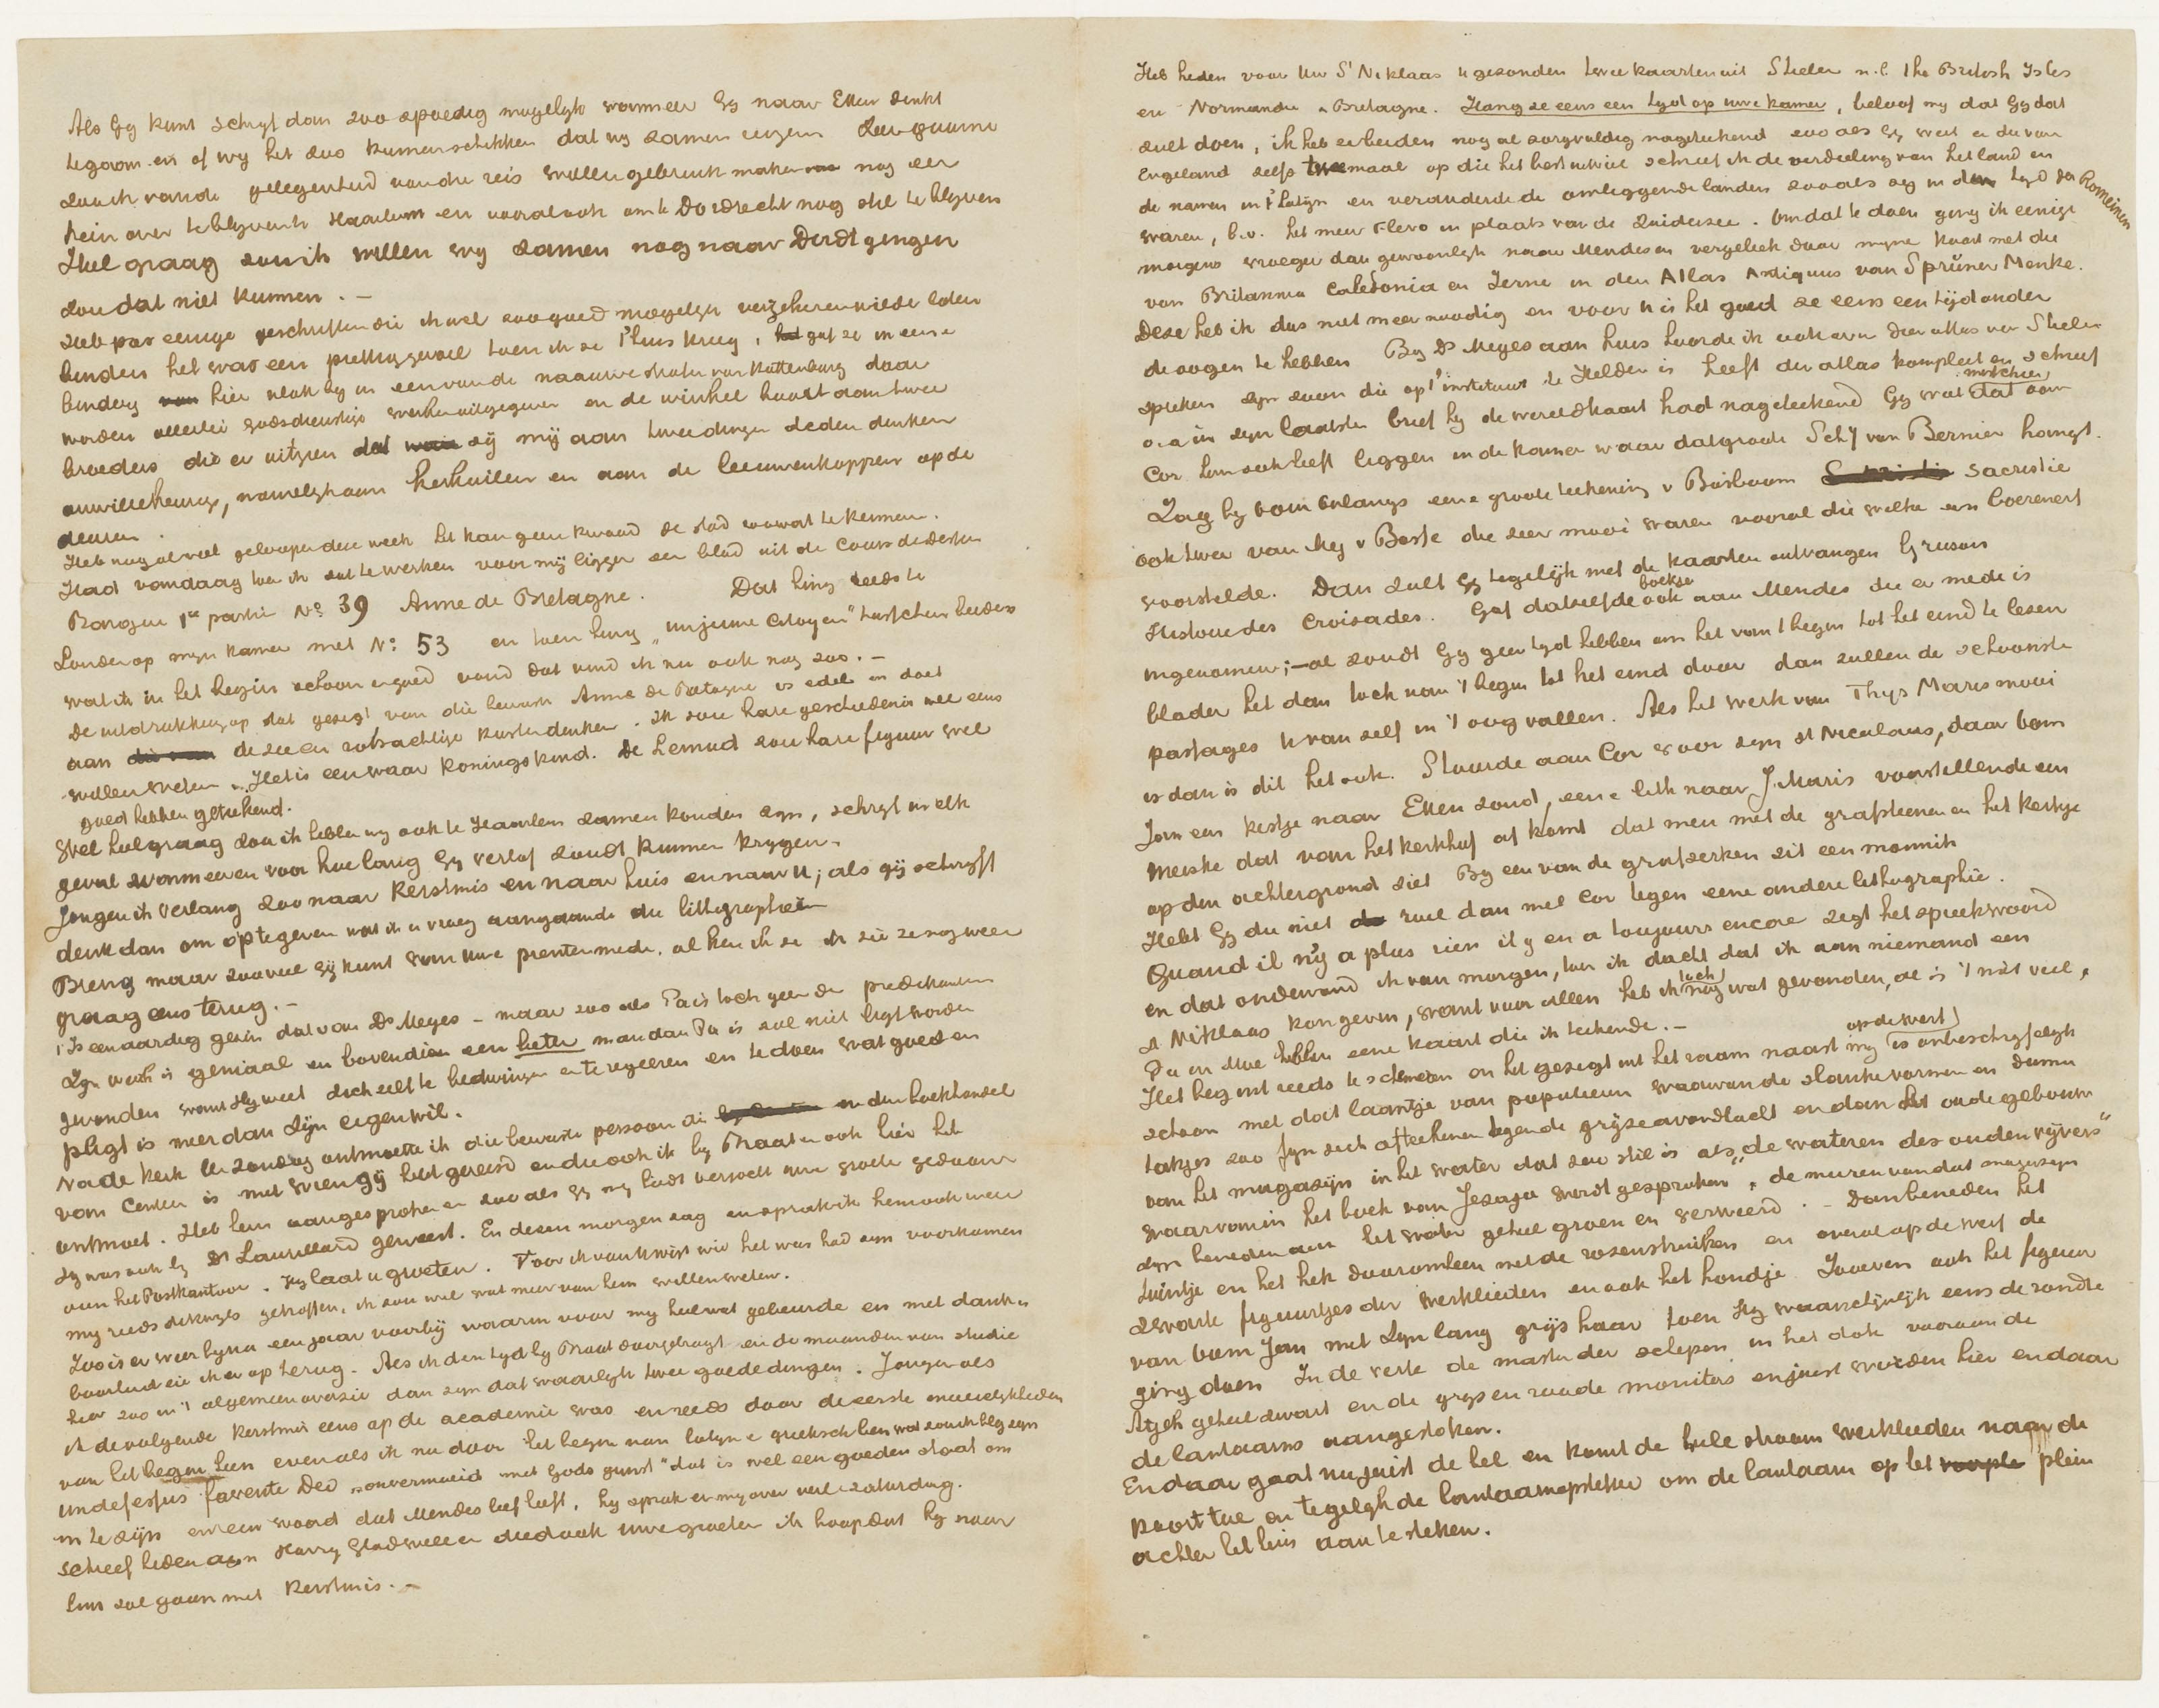 Als Gij kunt schrijf dan zoo spoedig mogelijk wanneer Gij naar Etten denkt
te gaan en of wij het zoo kunnen schikken dat wij zamen reizen Zeer gaarne
zou ik van de gelegenheid van die reis willen gebruik maken nog een
trein over te blijven te Haarlem en vooral ook om te Dordrecht nog stil te blijven
Heel graag zou ik willen wij zamen nog naar Dordt gingen
zou dat niet kunnen. –
Heb pas eenige geschriften die ik wel zoo goed mogelijk verzekeren wilde laten
binden het was een prettig gevoel toen ik ze t'huis kreeg, gaf ze in eene
binderij hier vlak bij in een van de naauwe straten van Kattenburg daar
worden allerlei godsdienstige werken uitgegeven en de winkel hoort aan twee
broeders die er uitzien dat zij mij aan twee dingen deden denken
onwillekeurig, namelijk aan kerkuilen en aan de leeuwenkoppen op de
deuren.
Heb nog al veel geloopen deze week het kan geen kwaad de stad wat te kennen.
Had vandaag toen ik zat te werken voor mij liggen een blad uit de Cours de dessin
Bargue 1re partie No 39 Anne de Bretagne. Dat hing reeds te
Londen op mijn kamer met No: 53 en toen hing „un jeune Citoyen" tusschen beiden
wat ik in het begin schoon en goed vond dat vind ik nu ook nog zoo. –
De uitdrukking op dat gezigt van die Anne de Bretagne is edel en doet
aan de zee en rotsachtige kusten denken. Ik zou hare geschiedenis wel eens
willen weten. Het is een waar koningskind. De Lemud zou hare figuur wel
goed hebben geteekend.
Wel heel graag zou ik hebben wij ook te Haarlem zamen konden zijn, schrijf in elk
geval wanneer en voor hoe lang Gij verlof zoudt kunnen krijgen.
Jongen ik verlang zoo naar Kerstmis en naar huis en naar U; als gij schrijft
denk dan om op te geven wat ik u vroeg aangaande die lithographieën
Breng maar zooveel gij kunt van Uwe prenten mede, al ken ik ze ik zie ze nog weer
graag eens terug. –
't Is een aardig gezin dat van Ds Meyes – maar zoo als Pa is toch geen der predikanten
Zijn werk is geniaal en bovendien een beter man dan Pa is zal niet ligt worden
gevonden want Hij weet zich zelf te bedwingen en te regeeren en te doen wat goed en
pligt is meer dan Zijn eigen wil.
Na de kerk ll. zondag ontmoette ik die bewuste persoon die in den boekhandel
van Center is met wien gij hebt gereisd en die ook ik bij Braat en ook hier heb
ontmoet. Heb hem aangesproken en zoo als Gij mij hadt verzocht uwe groete gedaan
hij was ook bij Ds Laurillard geweest. En dezen morgen zag en sprak ik hem ook weer
aan het Postkantoor. Hij laat u groeten. Voor ik van U wist wie het was had zijn voorkomen
mij reeds dikwijls getroffen, ik zou wel wat meer van hem willen weten.
Zoo is er weer bijna een jaar voorbij waarin voor mij heel wat gebeurde en met dank
baarheid zie ik er op terug. Als ik den tijd bij Braat doorgebragt en de maanden van studie
hier zoo in 't algemeen overzie dan zijn dat waarlijk twee goede dingen. Jongen als
ik de volgende Kerstmis eens op de academie was en reeds door de eerste moeielijkheden
van het begin heen evenals ik nu door het begin van latijn & grieksch ben wat zou ik blij zijn
Indefessus favente Deo „onvermoeid met Gods gunst" dat is wel een goeden staat om
in te zijn en een woord dat Mendes lief heeft, hij sprak er mij over verl. zaturdag.
Schreef heden aan Harry Gladwell en deed ook Uwe groeten ik hoop dat hij naar
huis zal gaan met Kerstmis. –
Heb heden voor Uw St Niklaas u gezonden twee kaarten uit Stieler n.l. the British Isles
en Normandie & Bretagne. Hang ze eens een tijd op uwe kamer, beloof mij dat Gij dat
zult doen, ik heb ze beiden nog al zorgvuldig nageteekend zoo als Gij weet en die van
Engeland zelfs tweemaal op die het best uitviel schreef ik de verdeeling van het land en
de namen in 't Latijn en veranderde de omliggende landen zooals zij in den tijd der Romeinen
waren, b.v. het meer Flevo in plaats van de Zuiderzee. Om dat te doen ging ik eenige
morgens vroeger dan gewoonlijk naar Mendes en vergeleek daar mijne kaart met die
van Britannia Caledonia en Ierne in den Atlas Antiquus van Sprüner Menke.
Deze heb ik dus niet meer noodig en voor U is het goed ze eens een tijd onder
de oogen te hebben Bij Ds Meyes aan huis hoorde ik ook over den atlas van Stieler
spreken zijn zoon die op 't instituut te Helder is heeft den atlas kompleet en schreef
o.a. in zijn laatsten brief hij de wereldkaart had nageteekend Gij wist misschien dat oom
Cor hem ook heeft liggen in de kamer waar dat groote Schij van Bernier hangt.
Zag bij oom onlangs eene groote teekening v Bosboom Sacristie
ook twee van Mej v Bosse die zeer mooi waren vooral die welke een boerenerf
voorstelde. Dan zult Gij tegelijk met de kaarten ontvangen Gruson
Histoire des Croisades. Gaf datzelfde boekje ook aan Mendes die er mede is
ingenomen; – al zoudt Gij geen tijd hebben om het van 't begin tot het eind te lezen
blader het dan toch van 't begin tot het eind door dan zullen de schoonste
passages U van zelf in 't oog vallen. Als het werk van Thijs Maris mooi
is dan is dit het ook. Stuurde aan Cor voor zijn St Nicolaas, daar oom
Jan een kistje naar Etten zond, eene lith naar J. Maris voorstellende een
meisje dat van het kerkhof af komt dat men met de grafsteenen en het kerkje
op den achtergrond ziet Bij een van de grafzerken zit een monnik
Hebt Gij die niet ruil dan met Cor tegen eene andere lithographie.
Quand il n'y a plus rien il y en a toujours encore zegt het spreekwoord
en dat ondervond ik van morgen, toen ik dacht dat ik aan niemand een
St Niklaas kon geven, want voor allen heb ik toch nog wat gevonden, al is 't niet veel.
Pa en Moe hebben eene kaart die ik teekende. –
Het begint reeds te schemeren en het gezigt uit het raam naast mij op de werf is onbeschrijfelijk
schoon met dat laantje van populieren waarvan de slanke vormen en dunne
takjes zoo fijn zich afteekenen tegen de grijze avondlucht en dan het oude gebouw
van het magazijn in het water dat zoo stil is als „de wateren des ouden vijvers"
waarvan in het boek van Jesaja wordt gesproken, de muren van dat magazijn
zijn beneden aan het water geheel groen en verweerd. – Dan beneden het
tuintje en het hek daaromheen met de rozenstruiken en overal op de werf de
zwarte figuurtjes der werklieden en ook het hondje Zooeven ook het figuur
van oom Jan met Zijn lang grijs haar toen Hij waarschijnlijk eens de ronde
ging doen In de verte de masten der schepen in het dok vooraan de
Atjeh geheel zwart en de grijs en roode monitors en juist worden hier en daar
de lantaarns aangestoken.
En daar gaat nu juist de bel en komt de heele stroom werklieden naar de
Poort toe en tegelijk de lantaarnopsteker om de lantaarn op het plein
achter het huis aan te steken.